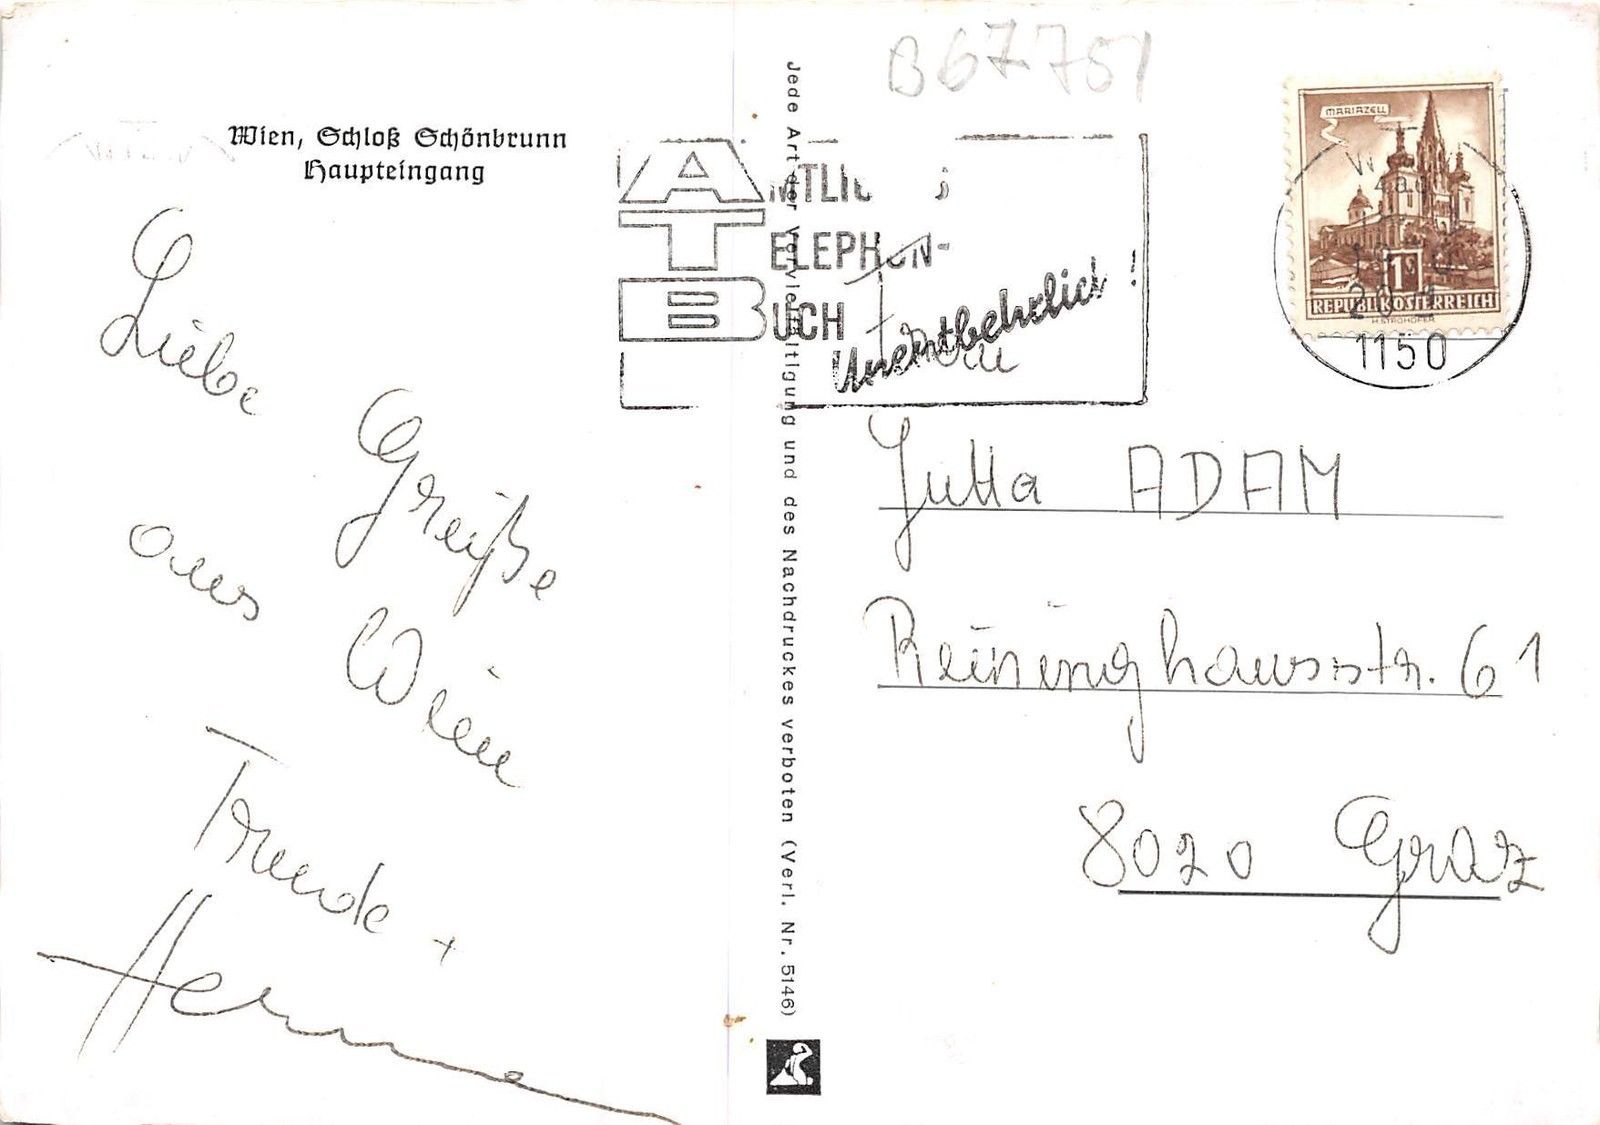 B67751
Wien, Schloß Schönbrunn
Haupteingang
Liebe Grüße
aus Wien
Trude +
Jede Art der Vervielfältigung und des Nachdruckes verboten (Verl. Nr. 5146)
AMTLICHES
TELEPHON-
BUCH
Unentbehrlich!
MARIAZELL
1
REPUBLIK ÖSTERREICH
H. STROHOFER
1150
Frau
Jutta ADAM
Reininghausstr. 61
8020 Graz